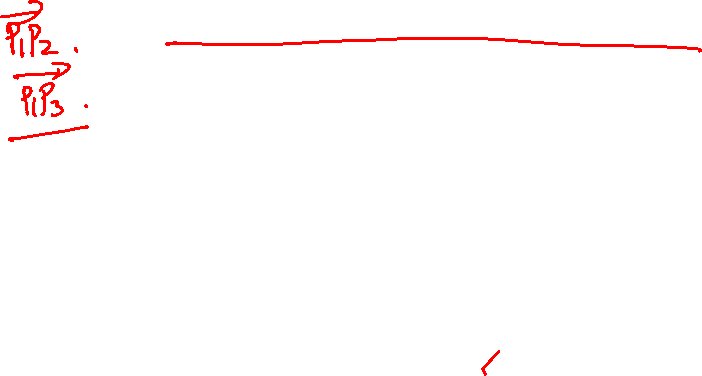 $\overrightarrow{P_1P_2}$.
$\overrightarrow{P_1P_3}$.